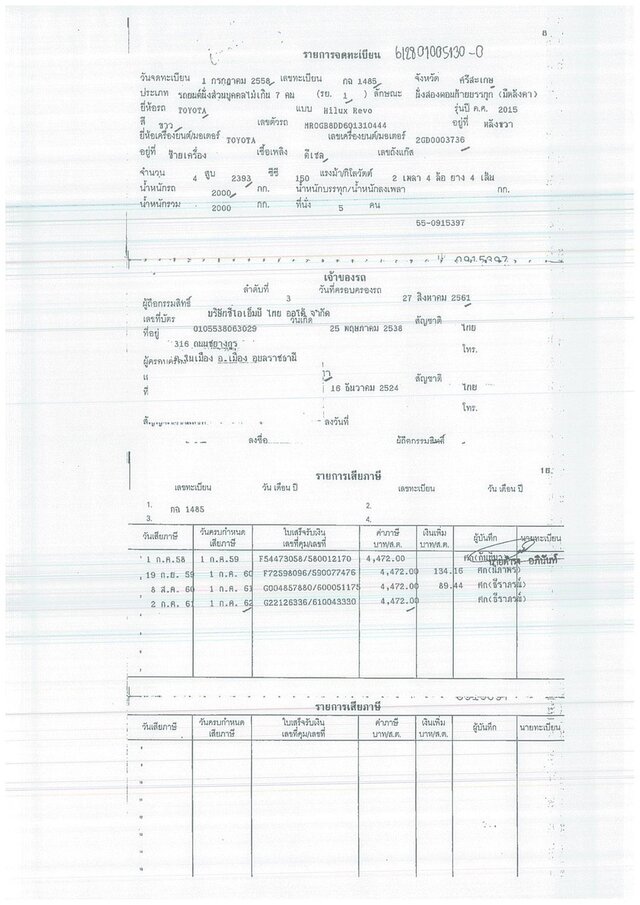 8
รายการจดทะเบียน 612801005130-0
วันจดทะเบียน 1 กรกฎาคม 2558 เลขทะเบียน กฉ 1485 จังหวัด ศรีสะเกษ
ประเภท รถยนต์นั่งส่วนบุคคลไม่เกิน 7 คน (รย. 1 ) ลักษณะ นั่งสองตอนท้ายบรรทุก (มีหลังคา)
ยี่ห้อรถ TOYOTA แบบ Hilux Revo รุ่นปี ค.ศ. 2015
สี ขาว เลขตัวรถ MR0GB8DD601310444 อยู่ที่ หลังขวา
ยี่ห้อเครื่องยนต์/มอเตอร์ TOYOTA เลขเครื่องยนต์/มอเตอร์ 2GD0003736
อยู่ที่ ซ้ายเครื่อง เชื้อเพลิง ดีเซล เลขถังแก๊ส
จำนวน 4 สูบ 2393 ซีซี 150 แรงม้า/กิโลวัตต์ 2 เพลา 4 ล้อ ยาง 4 เส้น
น้ำหนักรถ 2000 กก. น้ำหนักบรรทุก/น้ำหนักลงเพลา กก.
น้ำหนักรวม 2000 กก. ที่นั่ง 5 คน
55-0915397
0915397
เจ้าของรถ
ลำดับที่ 3 วันที่ครอบครองรถ 27 สิงหาคม 2561
ผู้ถือกรรมสิทธิ์ บริษัทซีไอเอ็มบี ไทย ออโต้ จำกัด
เลขที่บัตร 0105538063029 วันเกิด 25 พฤษภาคม 2538 สัญชาติ ไทย
ที่อยู่ 316 ถนนชยางกูร โทร.
ผู้ครอบครอง ต.ในเมือง อ.เมือง อุบลราชธานี
16 ธันวาคม 2524 สัญชาติ ไทย
ที่ โทร.
ลงวันที่
ลงชื่อ ผู้ถือกรรมสิทธิ์
16
รายการเสียภาษี
เลขทะเบียน วัน เดือน ปี เลขทะเบียน วัน เดือน ปี
1. กฉ 1485 2.
3. 4.
วันเสียภาษี วันครบกำหนดเสียภาษี ใบเสร็จรับเงินเลขที่คุม/เลขที่ ค่าภาษีบาท/ส.ต. เงินเพิ่มบาท/ส.ต. ผู้บันทึก นายทะเบียน
1 ก.ค.58 1 ก.ค.59 F54473058/580012170 4,472.00
19 ก.ย. 59 1 ก.ค. 60 F72598096/590077476 4,472.00 134.16
8 ส.ค. 60 1 ก.ค. 61 G004857880/600051175 4,472.00 89.44 ศก(ธีราภรณ์)
2 ก.ค. 61 1 ก.ค. 62 G22126336/610043330 4,472.00 ศก(ธีราภรณ์)
รายการเสียภาษี
วันเสียภาษี วันครบกำหนดเสียภาษี ใบเสร็จรับเงินเลขที่คุม/เลขที่ ค่าภาษีบาท/ส.ต. เงินเพิ่มบาท/ส.ต. ผู้บันทึก นายทะเบียน